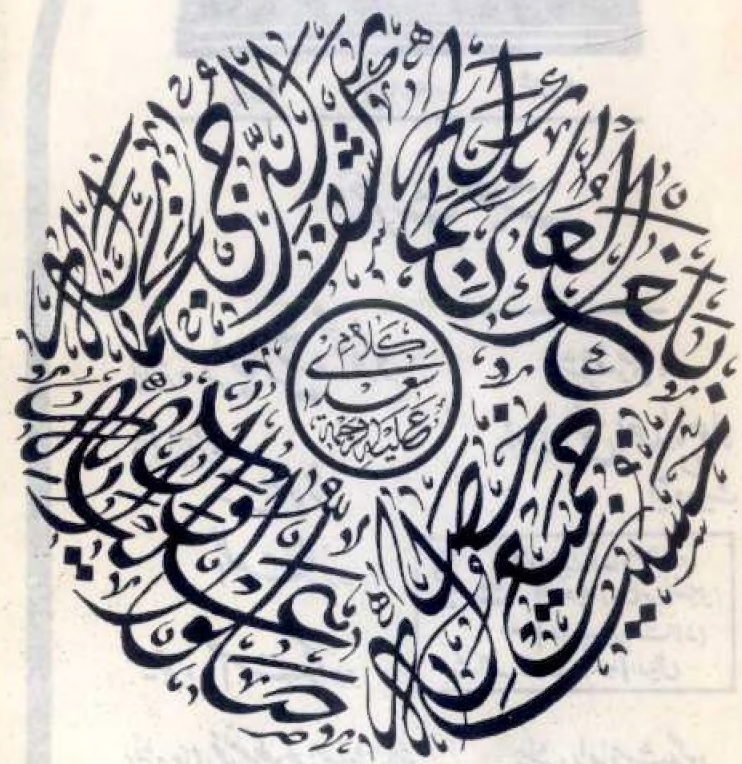 بلغ العلى بكماله
كشف الدجى بجماله
حسنت جميع خصاله
صلوا عليه وآله
كلام
سعدی
علیہ رحمۃ